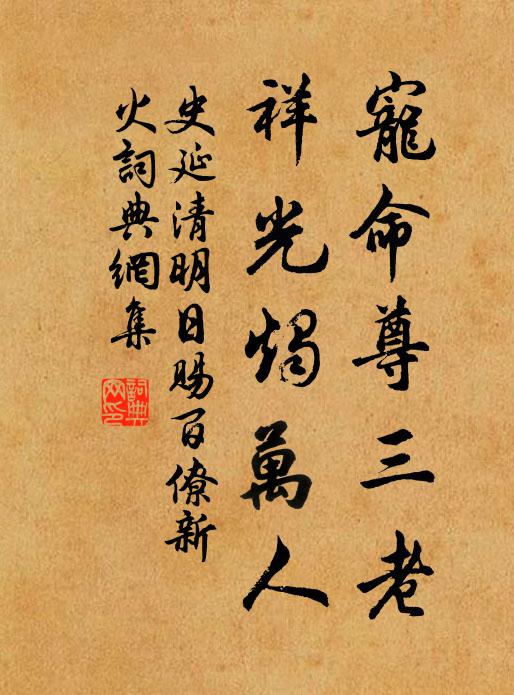 寵命尊三老
祥光燭萬人
史延清明日賜百僚新
火詞典網集
詞典
網印